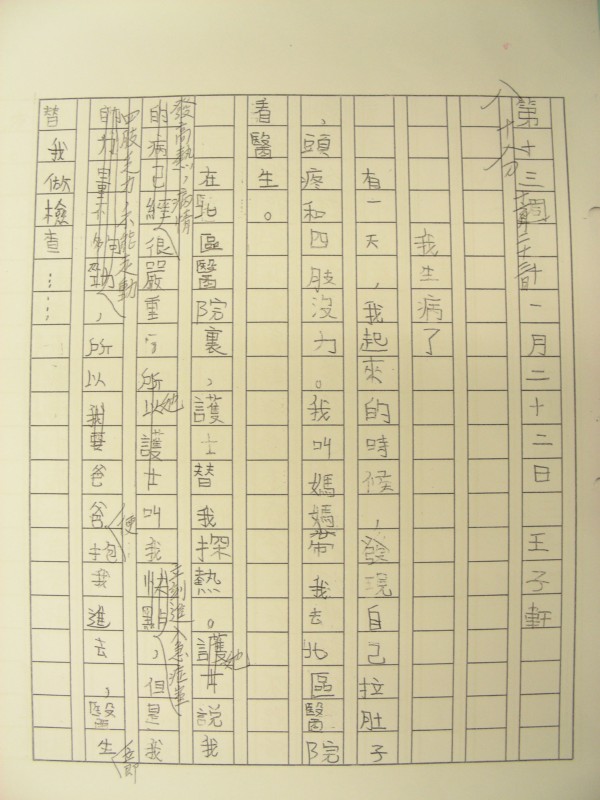 第十三週 一月二十二日 王子軒
八十分
我生病了
有一天,我起來的時候,發現自己拉肚子
,頭疼和四肢沒力。我叫媽媽帶我去北區醫院
看醫生。
在北區醫院裏,護士替我探熱。護士說我
她
發高熱,病情
的病已經很嚴重,所以護士叫我快點,但是我
她
立刻進入急症室
四肢乏力,不能走動
的力量不夠動,所以我要爸爸抱我進去,醫生
便
立即
替我做檢查……